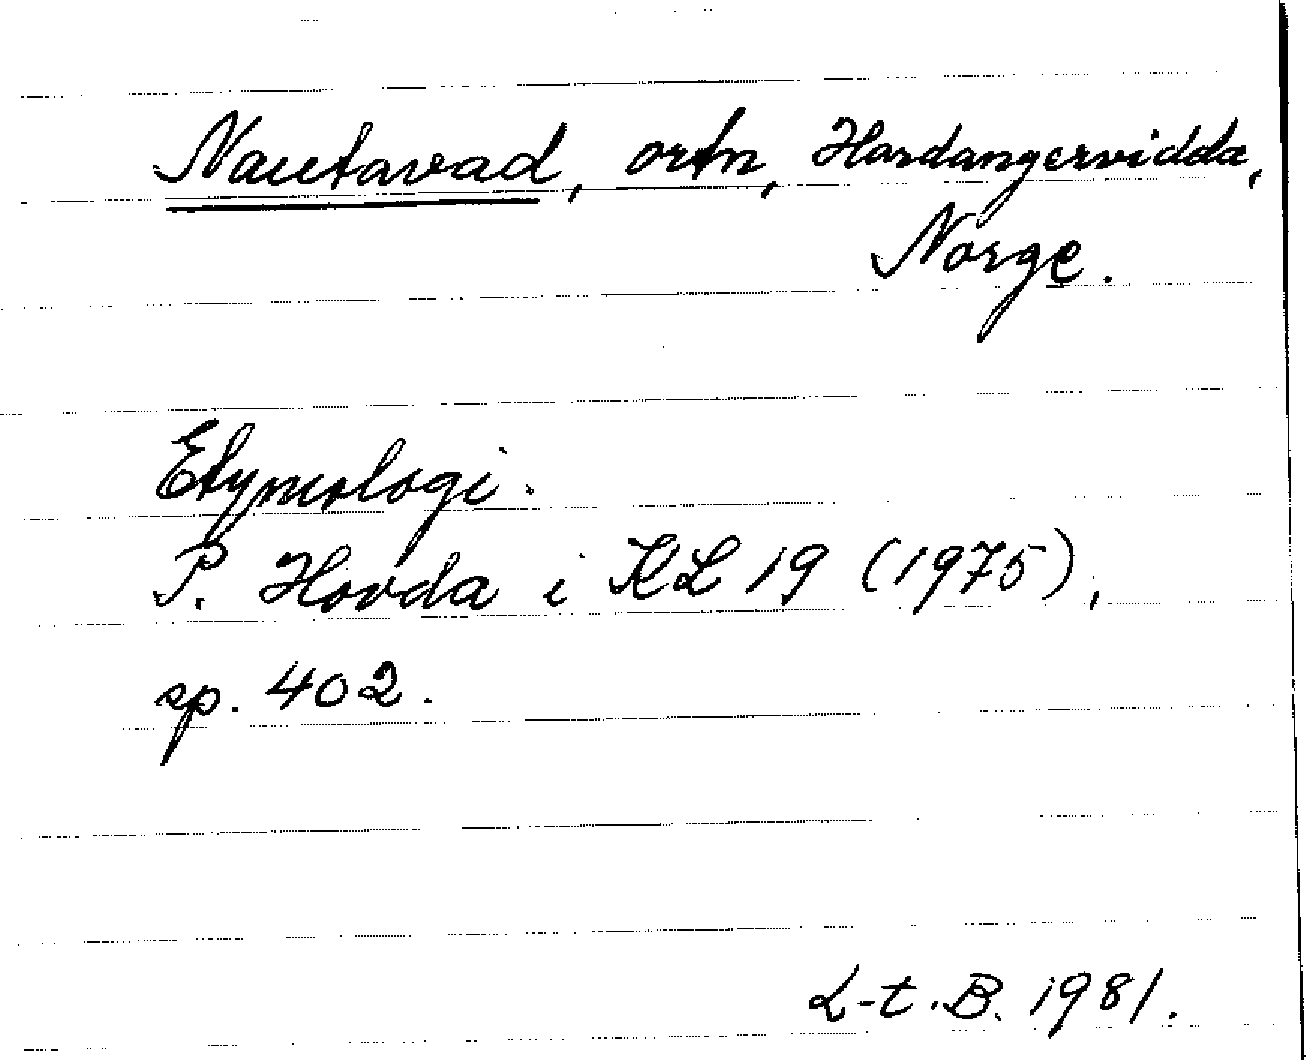 Nautavad, ortn, Hardangervidda,
Norge.
Etymologi.
P. Hovda i KL 19 (1975),
sp. 402.
L-t. B. 1981.